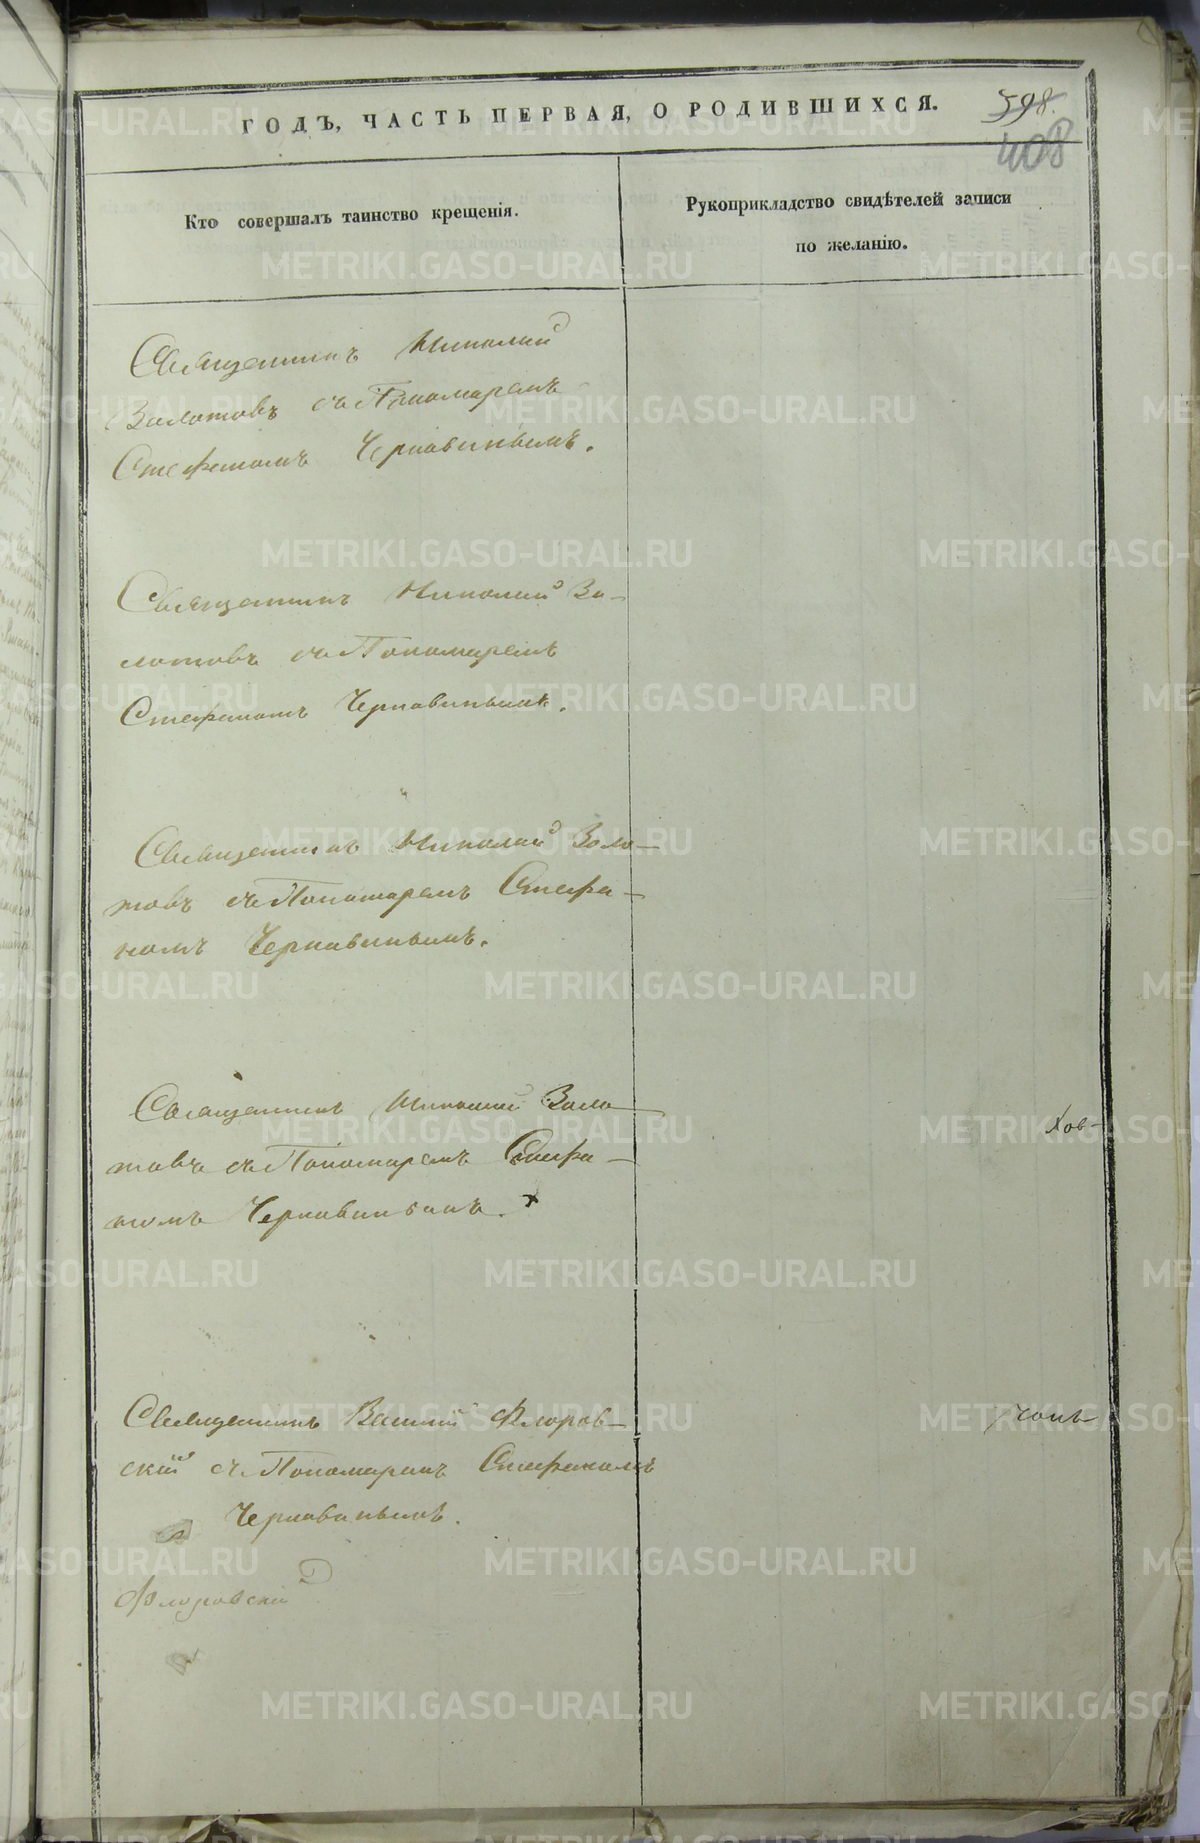 ГОДЪ, ЧАСТЬ ПЕРВАЯ, О РОДИВШИХСЯ.
598.
408
Кто совершалъ таинство крещенія.
Рукоприкладство свидѣтелей записи
по желанію.
Священникъ Николай
Золотовъ съ Пономаремъ
Стефаномъ Чернавинымъ.
Священникъ Николай Зо-
лотовъ съ Пономаремъ
Стефаномъ Чернавинымъ.
Священникъ Николай Золо-
товъ съ Пономаремъ Стефа-
номъ Чернавинымъ.
Священникъ Николай Золо-
товъ съ Пономаремъ Стефа-
номъ Чернавинымъ.
Хов-
Священникъ Василій Флоров-
скій съ Пономаремъ Стефаномъ
Чернавинымъ.
Флоровскій
METRIKI.GASO-URAL.RU